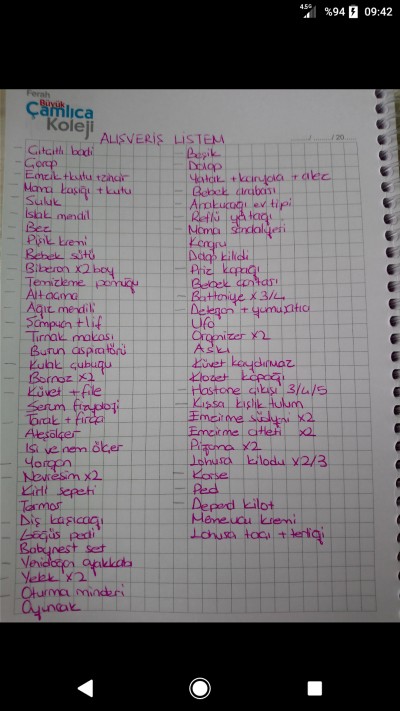 4.5G %94 09:42
Ferah
Büyük
Çamlıca
Koleji
ALIŞVERİŞ LİSTEM
...../...../20
Çıtçıtlı badi
Çorap
Emzik+kutu+zincir
Mama kaşığı + kutu
Suluk
Islak mendil
Bez
Pişik kremi
Bebek sütü
Biberon x2 boy
Temizleme pamuğu
Alt açma
Ağız mendili
Şampuan + lif
Tırnak makası
Burun aspiratörü
Kulak çubuğu
Bornoz x2
Küvet + file
Serum fizyoloji
Tarak + fırça
Ateşölçer
Isı ve nem ölçer
Yorgan
Nevresim x2
Kirli sepeti
Tarmas
Diş kaşıcağı
Göğüs pedi
Babynest set
Yenidoğan ayakkabı
Yelek x2
Oturma minderi
Oyuncak
Beşik
Dolap
Yatak + karyola + alez
Bebek arabası
Anakucağı ev tipi
Reflü yatağı
Mama sandalyesi
Kanguru
Dolap kilidi
Priz kapağı
Bebek çantası
Battaniye x 3/4
Deterjan + yumuşatıcı
Ufo
Organizer x2
Askı
Küvet kaydırmaz
Klozet kapağı
Hastane çıkışı 3/4/5
Kışsa kışlık tulum
Emzirme südyeni x2
Emzirme atleti x2
Pijama x2
Lohusa kilodu x2/3
Korse
Ped
Depend kilot
Memeucu kremi
Lohusa tacı + terliği